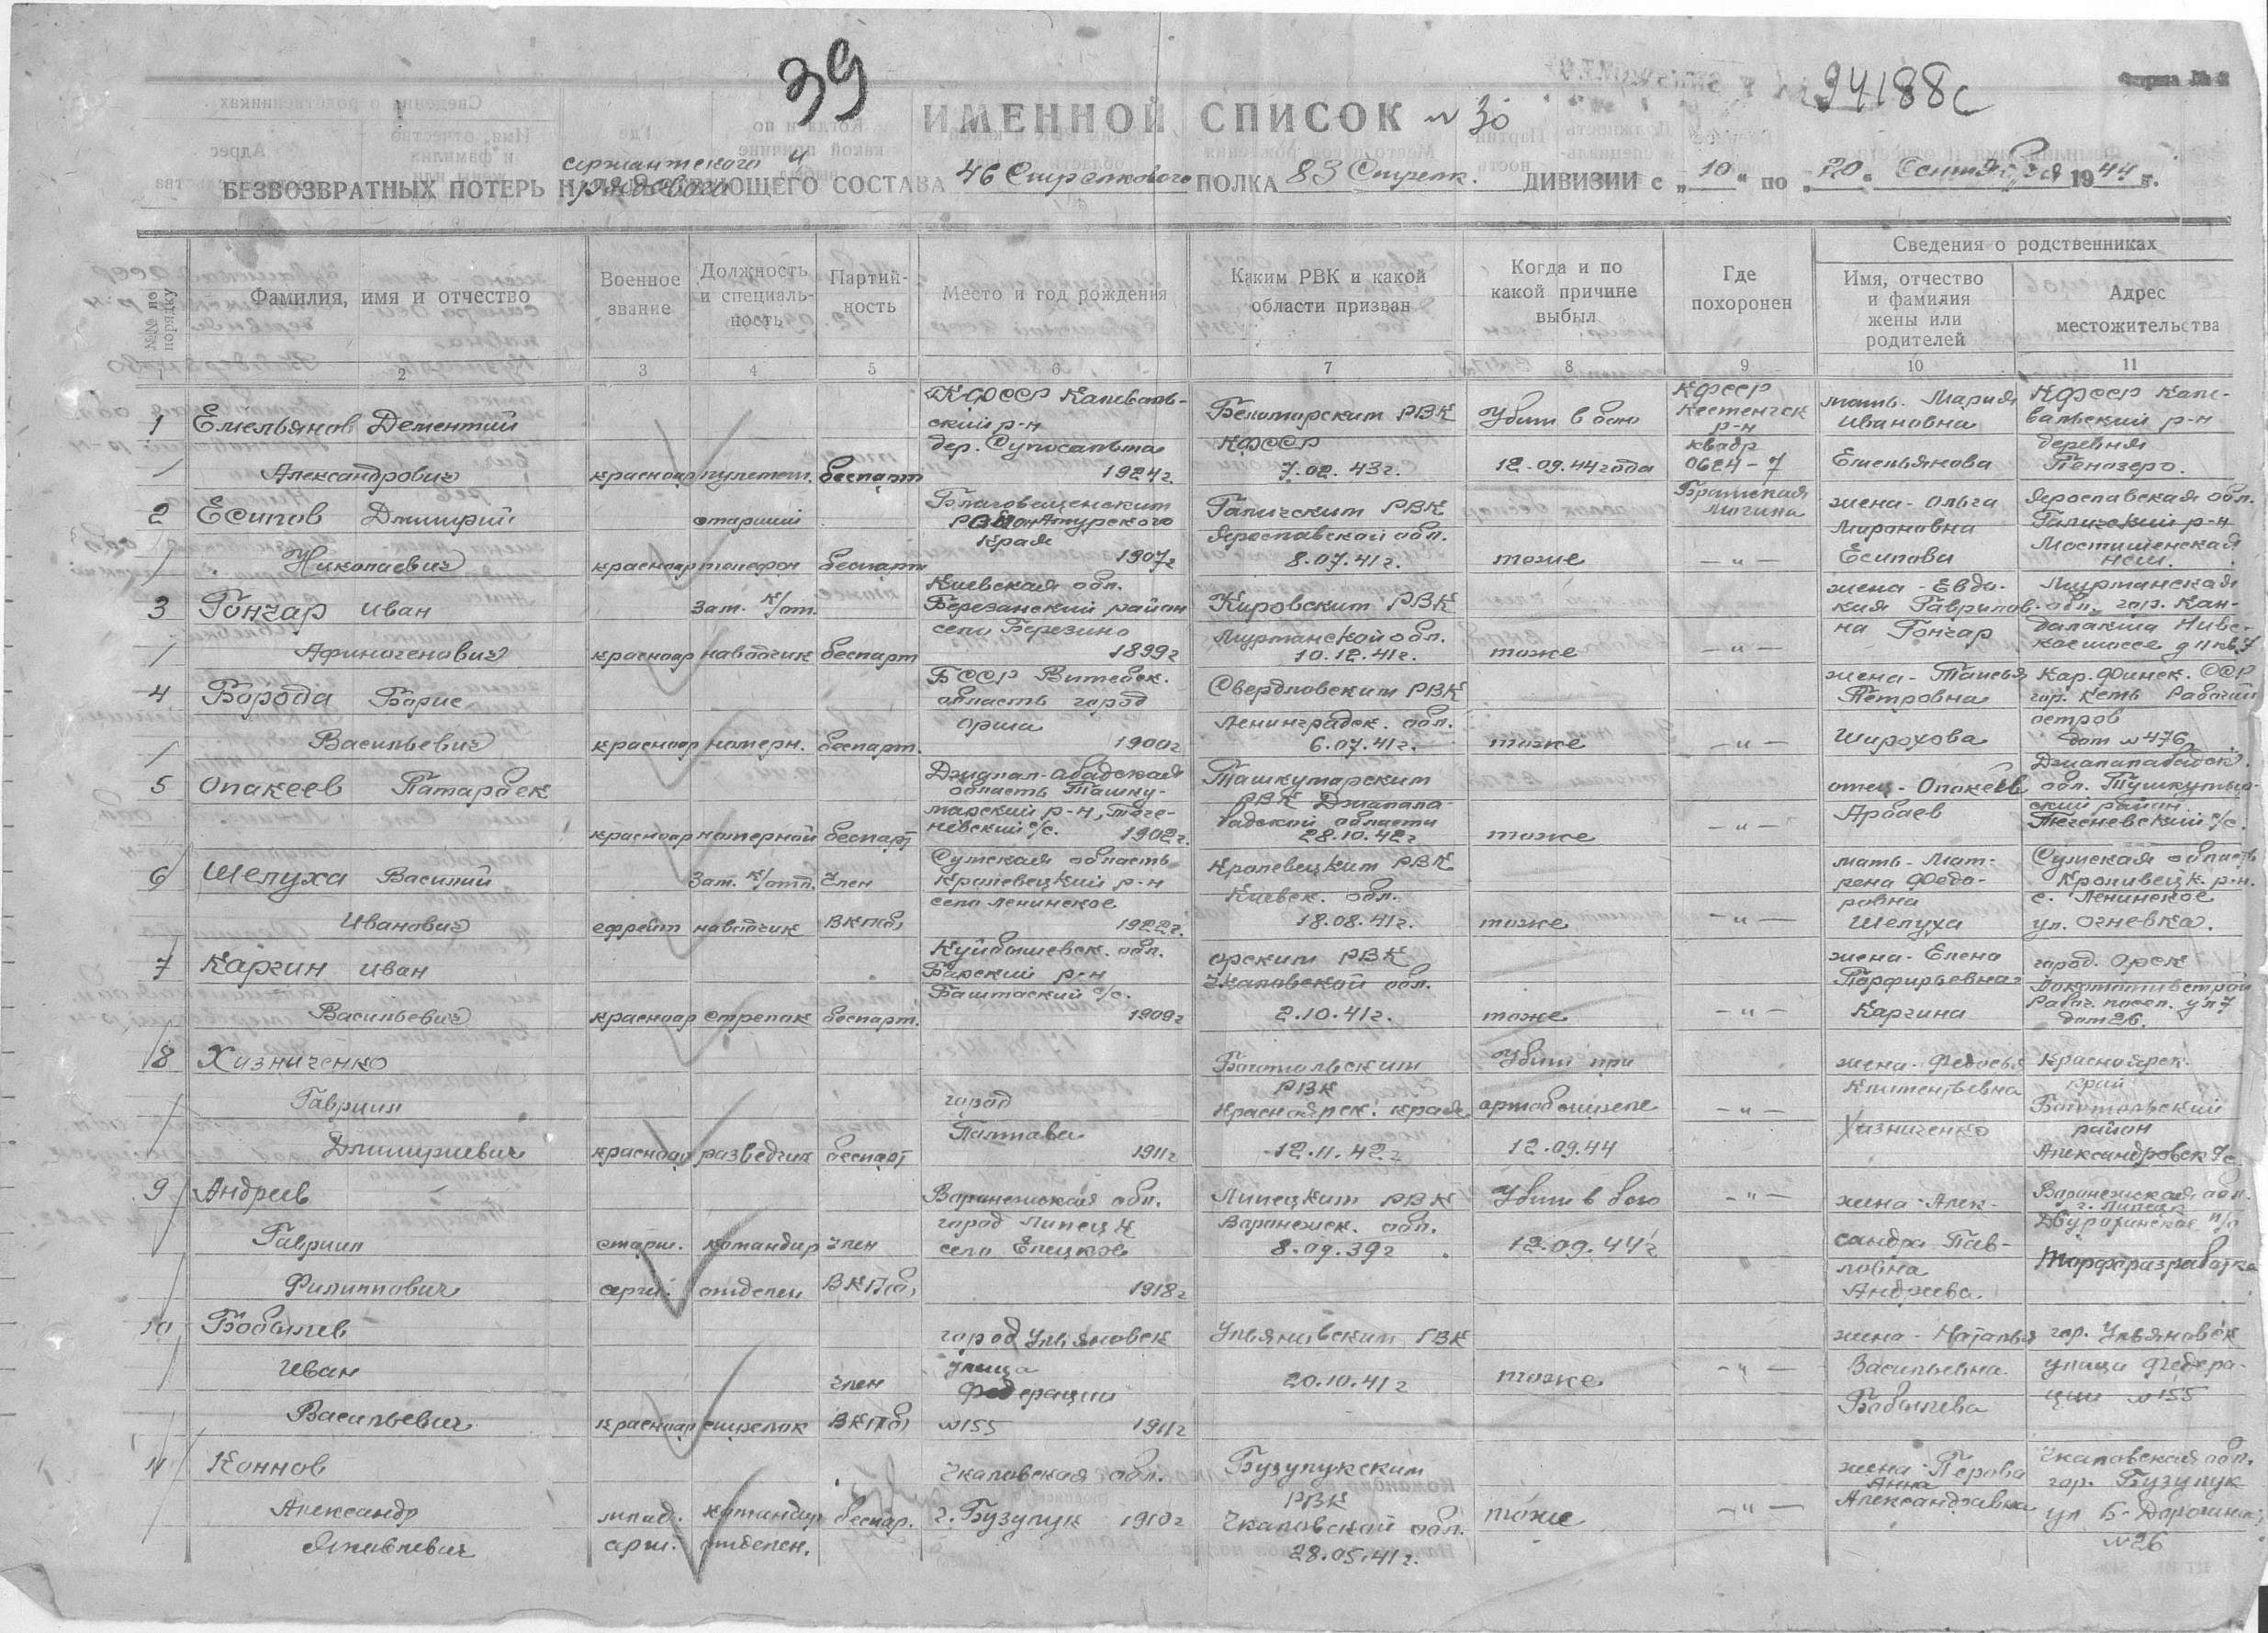 39
94188с
Форма № 2
ИМЕННОЙ СПИСОК № 30
сержантского и
рядового
БЕЗВОЗВРАТНЫХ ПОТЕРЬ СОСТАВА 46 Стрелкового ПОЛКА 83 Стрелк. ДИВИЗИИ с „10“ по „20“ Сентября 1944 г.
№№ по порядку
Фамилия, имя и отчество
Военное звание
Должность и специаль-ность
Партий-ность
Место и год рождения
Каким РВК и какой области призван
Когда и по какой причине выбыл
Где похоронен
Сведения о родственниках
Имя, отчество и фамилия жены или родителей
Адрес местожительства
1 2 3 4 5 6 7 8 9 10 11
1 Емельянов Дементий Александрович красноар пулемет. беспарт КФССР Калеваль-ский р-н дер. Супосальма 1924г. Беломорским РВК КФССР 7.02.43г. Убит в бою 12.09.44 года КФССР Кестенгск р-н квадр 0624-7 Братская могила мать. Мария Ивановна Емельянова КФССР Кале-вальский р-н деревня Пенозеро.
2 Есипов Дмитрий Николаевич старший красноар телефон беспарт Благовещенский район Амурского края 1907г Галичским РВК Ярославской обл. 8.07.41г. тоже -"- жена-Ольга Мироновна Есипова Ярославская обл. Галичский р-н
3 Гончар Иван Афиногенович красноар Зам. к/от. наводчик беспарт Киевская обл. Березанский район село Березино 1899г Кировским РВК Мурманской обл. 10.12.41г. тоже -"- жена-Евдо-кия Гаврилов-на Гончар Мурманская обл. гор. Кан-далакша Нивс-кое шоссе д 11 кв.7
4 Борода Борис Васильевич красноар номерн. беспарт. БССР Витебск. область город Орша 1900г Свердловским РВК Ленинградск. обл. 6.07.41г. тоже -"- жена-Таисья Петровна Широхова Кар.Финск. ССР гор. Кемь Рабочий остров дом №476
5 Опакеев Патарбек красноар номерной беспарт Джалал-Абадская область Ташку-марский р-н, с/с. 1902г. Ташкумарским РВК области 28.10.42г тоже -"- отец-Опакеев Арбаев обл. район с/с.
6 Шелуха Василий Иванович ефрейт Зам. к/отд. наводчик член ВКП(б) Сумская область Кролевецкий р-н село Ленинское 1922г. Кролевецким РВК Киевск. обл. 18.08.41г. тоже -"- мать-Мат-рена Федо-ровна Шелуха Сумская область Кроливецк. р-н. с. Ленинское ул. Огневка.
7 Каргин Иван Васильевич красноар стрелок беспарт. Куйбышевск. обл. Барский р-н с/с. 1909г Орским РВК Чкаловской обл. 2.10.41г. тоже -"- жена-Елена Порфирьевна Каргина город. Орск Локомотивстрой Рабоч. посел. ул 7 дом 26.
8 Хизниченко Гавриил Дмитриевич красноар разведчик беспарт город Полтава 1911г Боготольским РВК Красноярск. края 12.11.42г Убит при артобстреле 12.09.44 -"- жена-Федосья Климентьевна Хизниченко Красноярск. край Боготольский район Александровск с/с
9 Андреев Гавриил Филиппович старш. серж. командир отделен член ВКП(б) Воронежская обл. город Липецк село Елецкое 1918г Липецким РВК Воронежск. обл. 8.09.39г Убит в бою 12.09.44г -"- жена-Алек-сандра Пав-ловна Андреева. Воронежская обл. г. Липецк Торфоразработка
10 Бобылев Иван Васильевич красноар стрелок член ВКП(б) город Ульяновск улица Федерации №155 1911г Ульяновским ГВК 20.10.41г тоже -"- жена-Наталья Васильевна Бобылева гор. Ульяновск улица Федера-ции №155
11 Коннов Александр Яковлевич млад. серж. командир отделен. беспар. Чкаловская обл. г. Бузулук 1910г Бузулукским РВК Чкаловской обл. 28.05.41г. тоже -"- жена-Перова Анна Александравна Чкаловская обл. гор. Бузулук ул №26